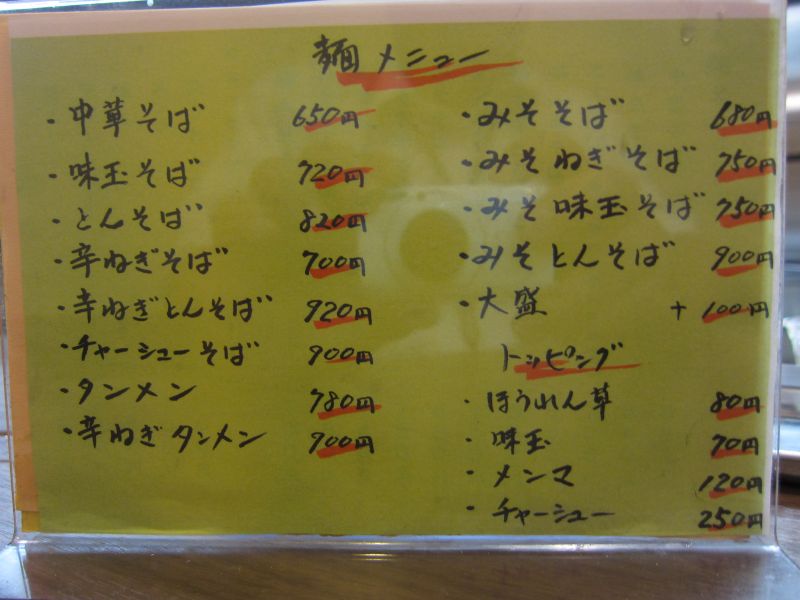 麺メニュー
・中華そば 650円
・味玉そば 720円
・とんそば 820円
・辛ねぎそば 700円
・辛ねぎとんそば 920円
・チャーシューそば 900円
・タンメン 780円
・辛ねぎタンメン 900円
・みそそば 680円
・みそねぎそば 750円
・みそ味玉そば 750円
・みそとんそば 900円
・大盛 +100円
トッピング
・ほうれん草 80円
・味玉 70円
・メンマ 120円
・チャーシュー 250円